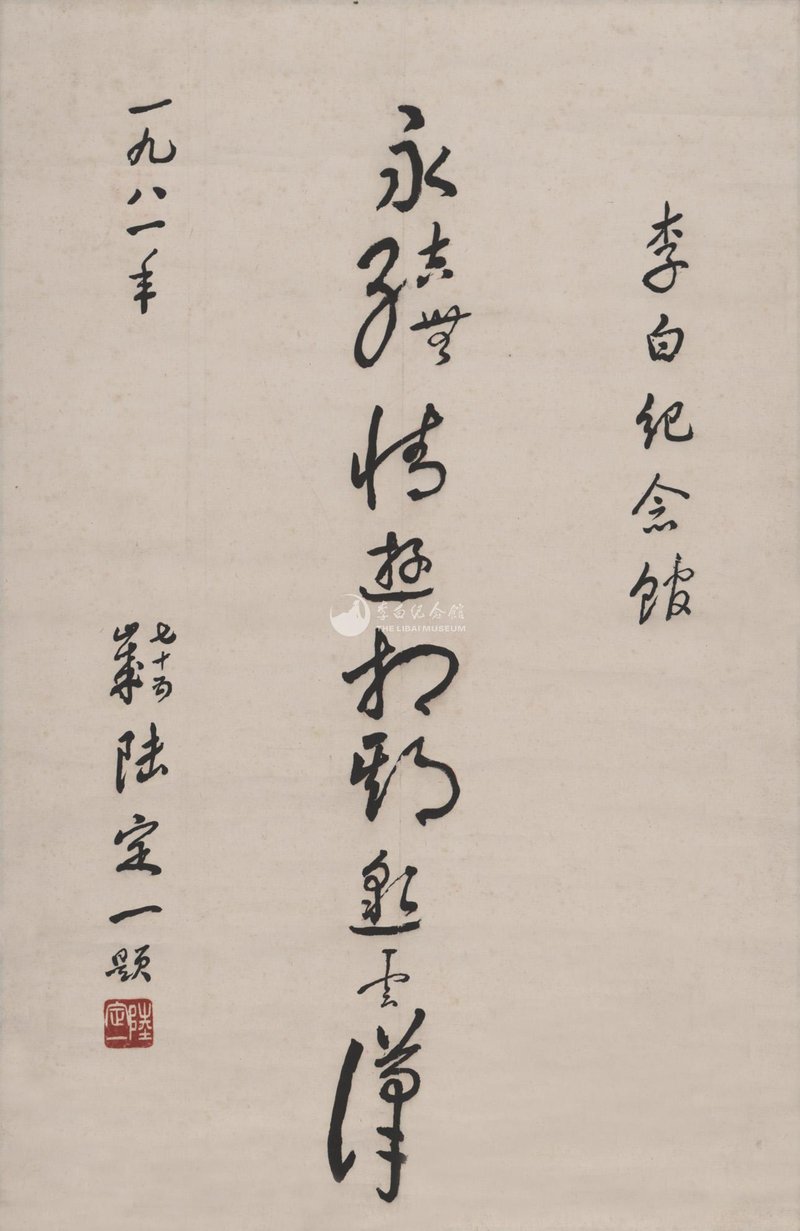 李白纪念馆
永结無情遊相期邈云漢
一九八一年
七十五歲陆定一题
陸定一
李白纪念馆
THE LIBAI MUSEUM